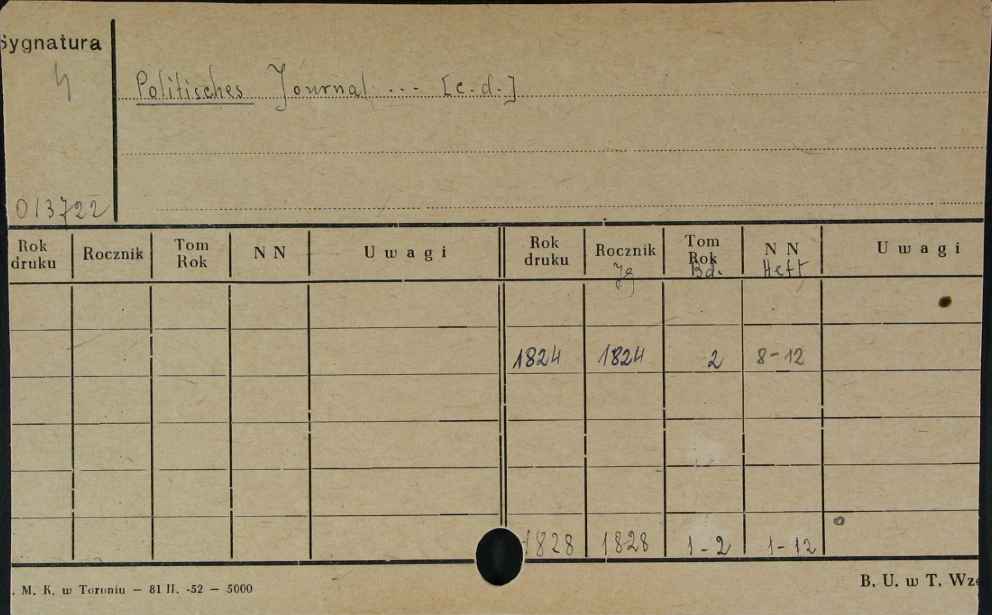 Sygnatura
4
Politisches Journal ... [c.d.]
013722
Rok druku Rocznik Tom Rok NN Uwagi Rok druku Rocznik Tom Rok NN Uwagi
Jg Bd. Heft
1824 1824 2 8-12
1828 1828 1-2 1-12
. M. K. w Toruniu — 81 II. -52 — 5000
B. U. w T.